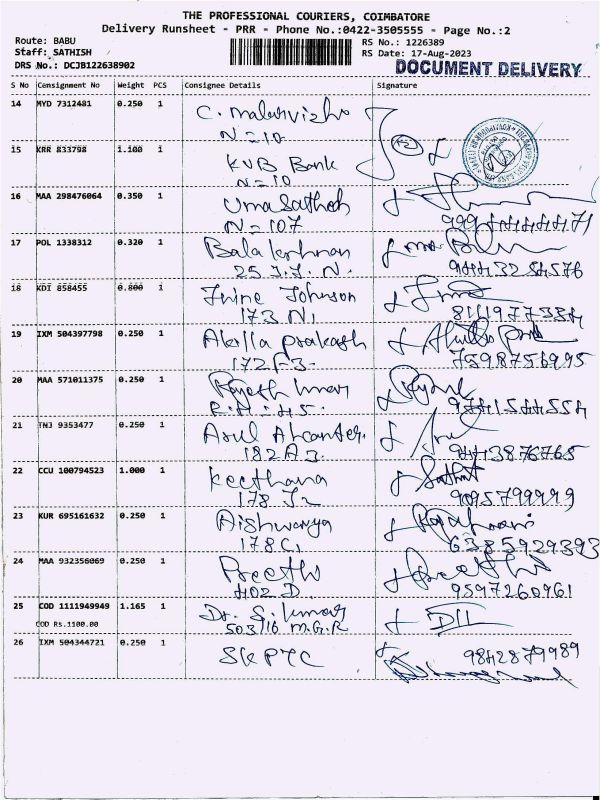 THE PROFESSIONAL COURIERS, COIMBATORE
Delivery Runsheet - PRR - Phone No.:0422-3505555 - Page No.:2
Route: BABU
RS No.: 1226389
Staff: SATHISH
RS Date: 17-Aug-2023
DRS No.: DCJB122638902
DOCUMENT DELIVERY
S No Consignment No Weight PCS Consignee Details Signature
14 MYD 7312481 0.250 1
N=10
15 KRR 833798 1.100 1 KVB Bank
N=10
16 MAA 298476064 0.350 1 Uma Sathosh
N=107
17 POL 1338312 0.320 1 Bala krishnan
25 J.J. N.
18 KDI 858455 0.800 1 Johnson
173 N1
19 IXM 504397798 0.250 1 Akilla prakash
172 F3 7598756995
20 MAA 571011375 0.250 1 Rajesh kumar
21 TNJ 9353477 0.250 1 Arul
182 A3
22 CCU 100794523 1.000 1 keerthana
178 J2 9095799999
23 KUR 695161632 0.250 1 Aishwarya
178 C1 6385929393
24 MAA 932356069 0.250 1 Preethi
402 D 9597260961
25 COD 1111949949 1.165 1 Dr. S. kumar
COD Rs.1100.00 503/16 M.G.R
26 IXM 504344721 0.250 1 SKPTC 9842879989